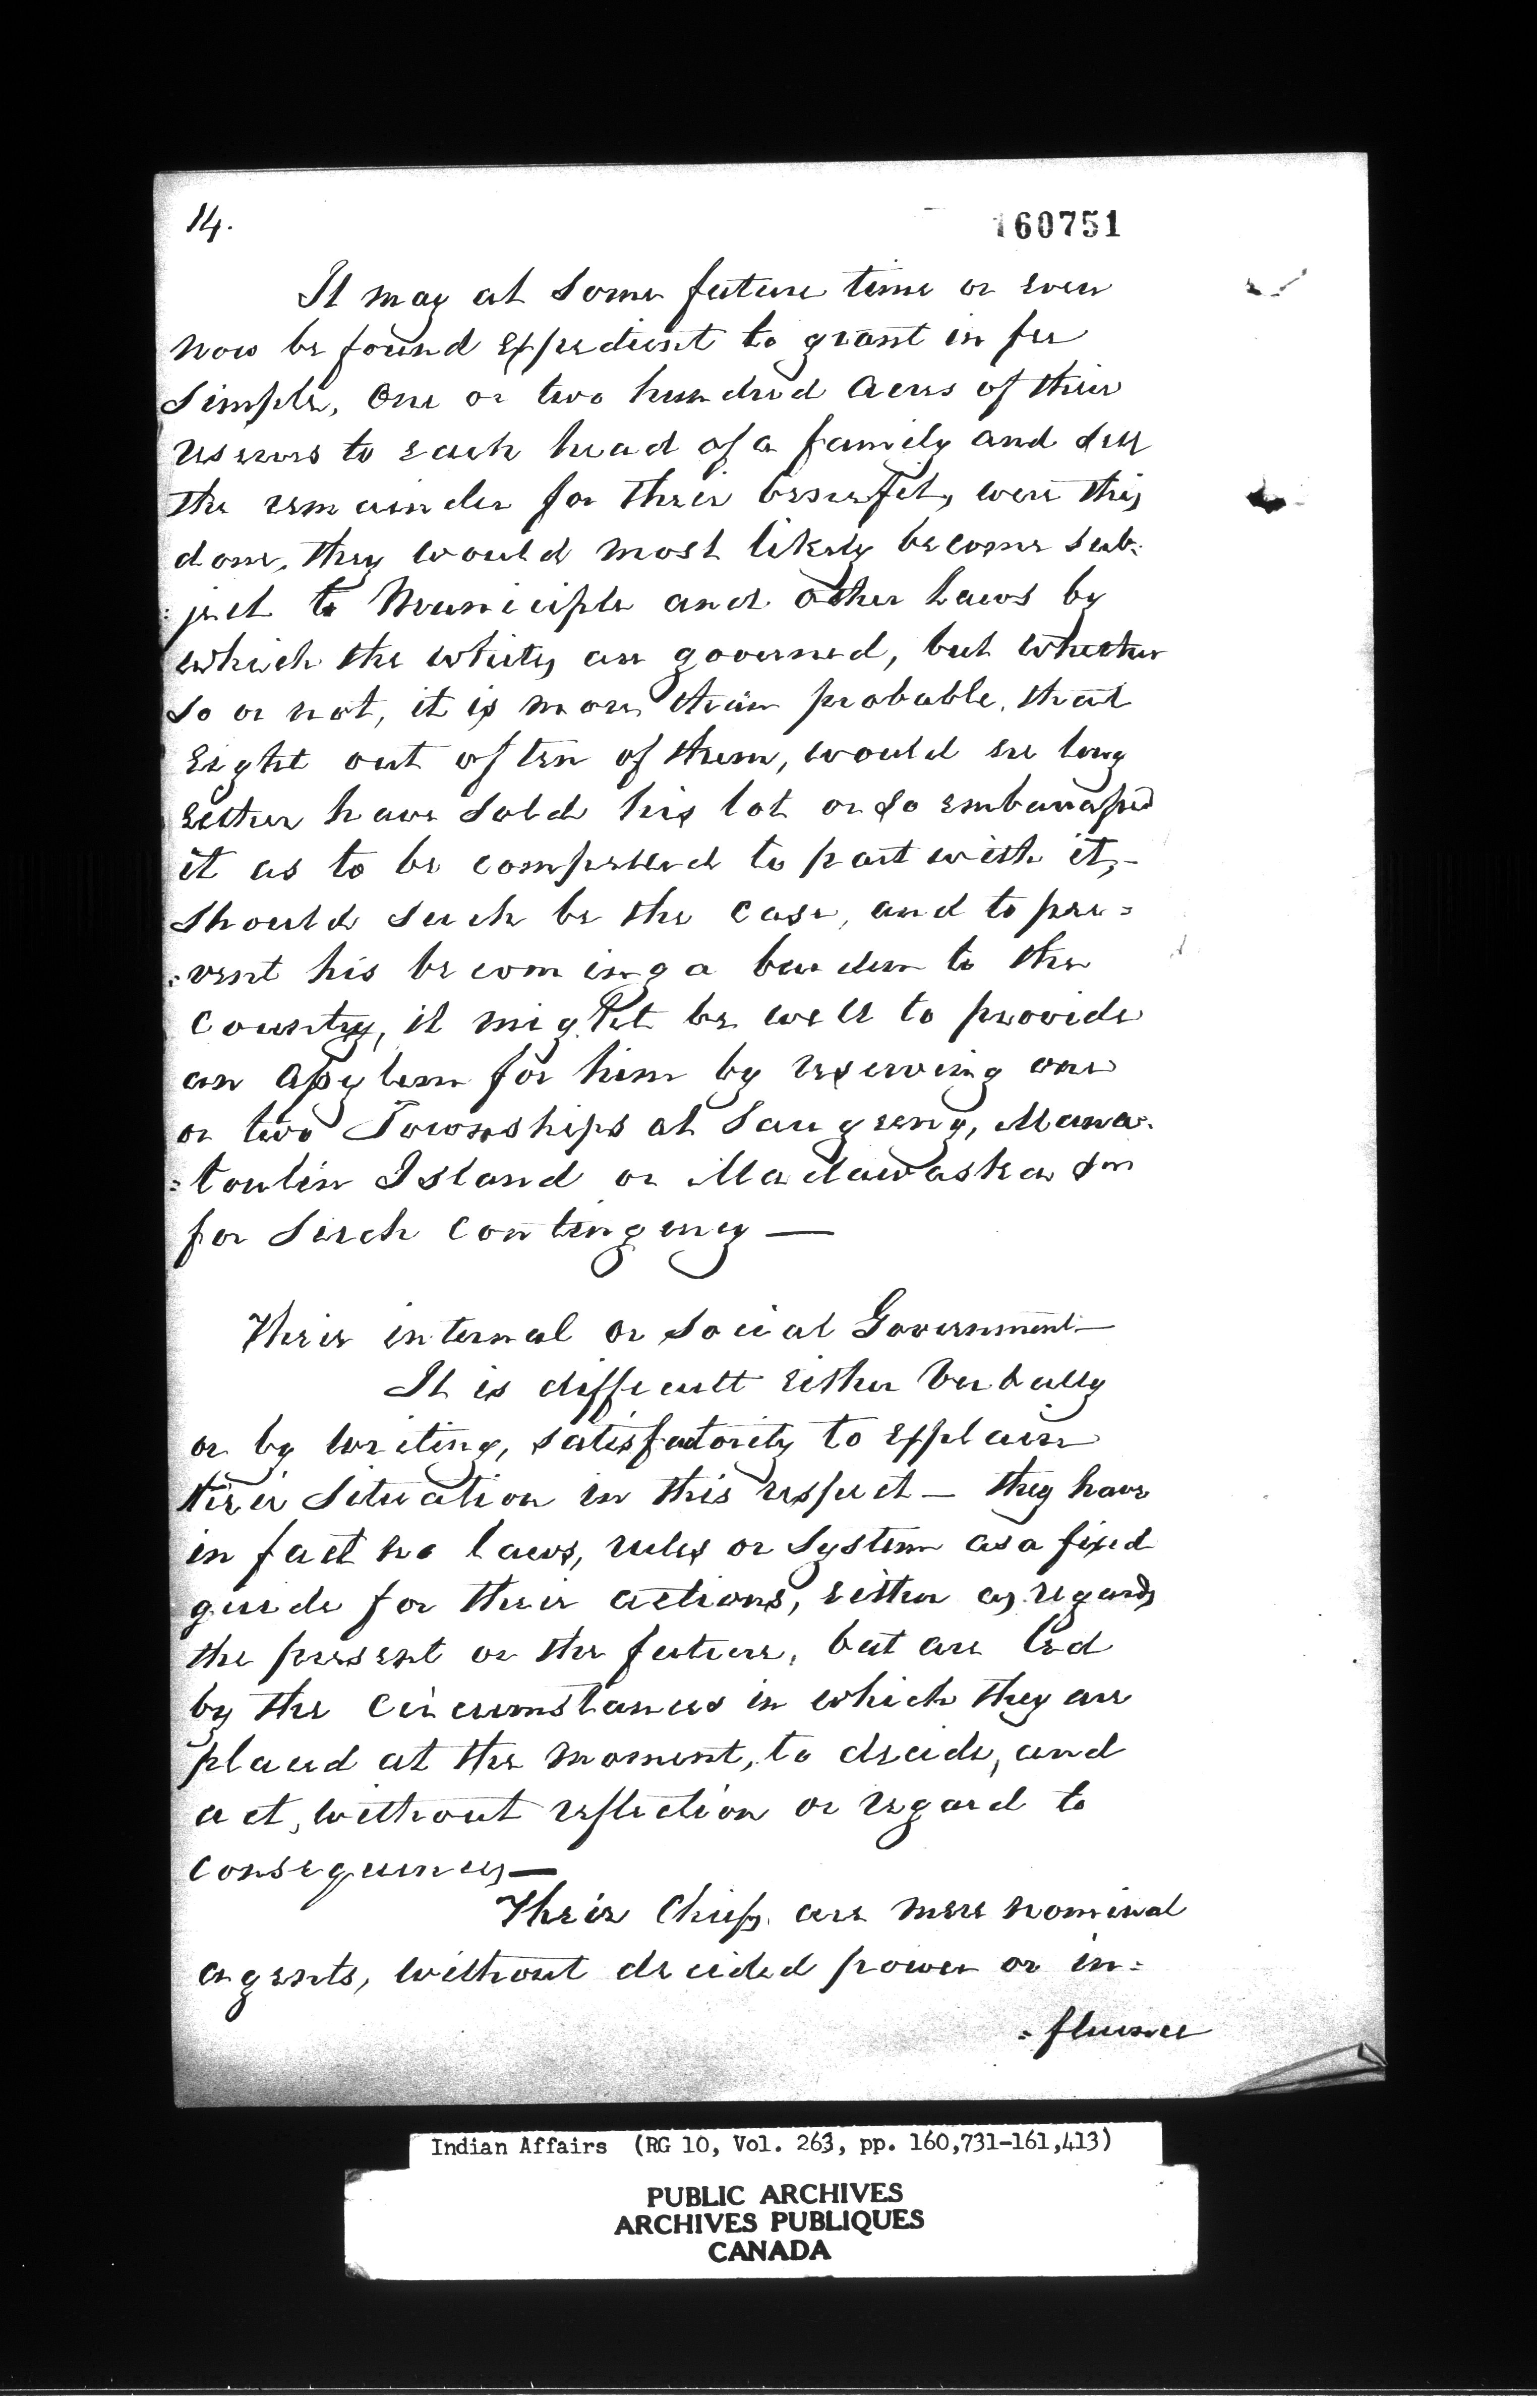 14.
160751
It may at some future time or even
now be found expedient to grant in fee
simple, one or two hundred acres of their
reserves to each head of a family and sell
the remainder for their benefit, were this
done, they would most likely become sub:
:ject to Municiple and other Laws by
which the whites are governed, but whether
so or not, it is more than probable, that
eight out of ten of them, would ere long
either have sold his lot or so embarrassed
it as to be compelled to part with it,–
should such be the case, and to pre=
:vent his becoming a burden to the
County, it might be well to provide
an Asylum for him by reserving one
or two Townships at Saugeeng, Mana:
:toulin Island or Madawaska
for such contingency —
Their internal or social Government—
It is difficult either verbally
or by writing, satisfactorily to explain
their situation in this respect – they have
in fact no laws, rules or system as a fixed
guide for their actions, either as regards
the present or the future, but are led
by the circumstances in which they are
placed at the moment, to decide, and
act, without reflection or regard to
consequences—
Their Chiefs are mere nominal
agents, without decided power or in:
:fluence
Indian Affairs (RG 10, Vol. 263, pp. 160,731-161,413)
PUBLIC ARCHIVES
ARCHIVES PUBLIQUES
CANADA